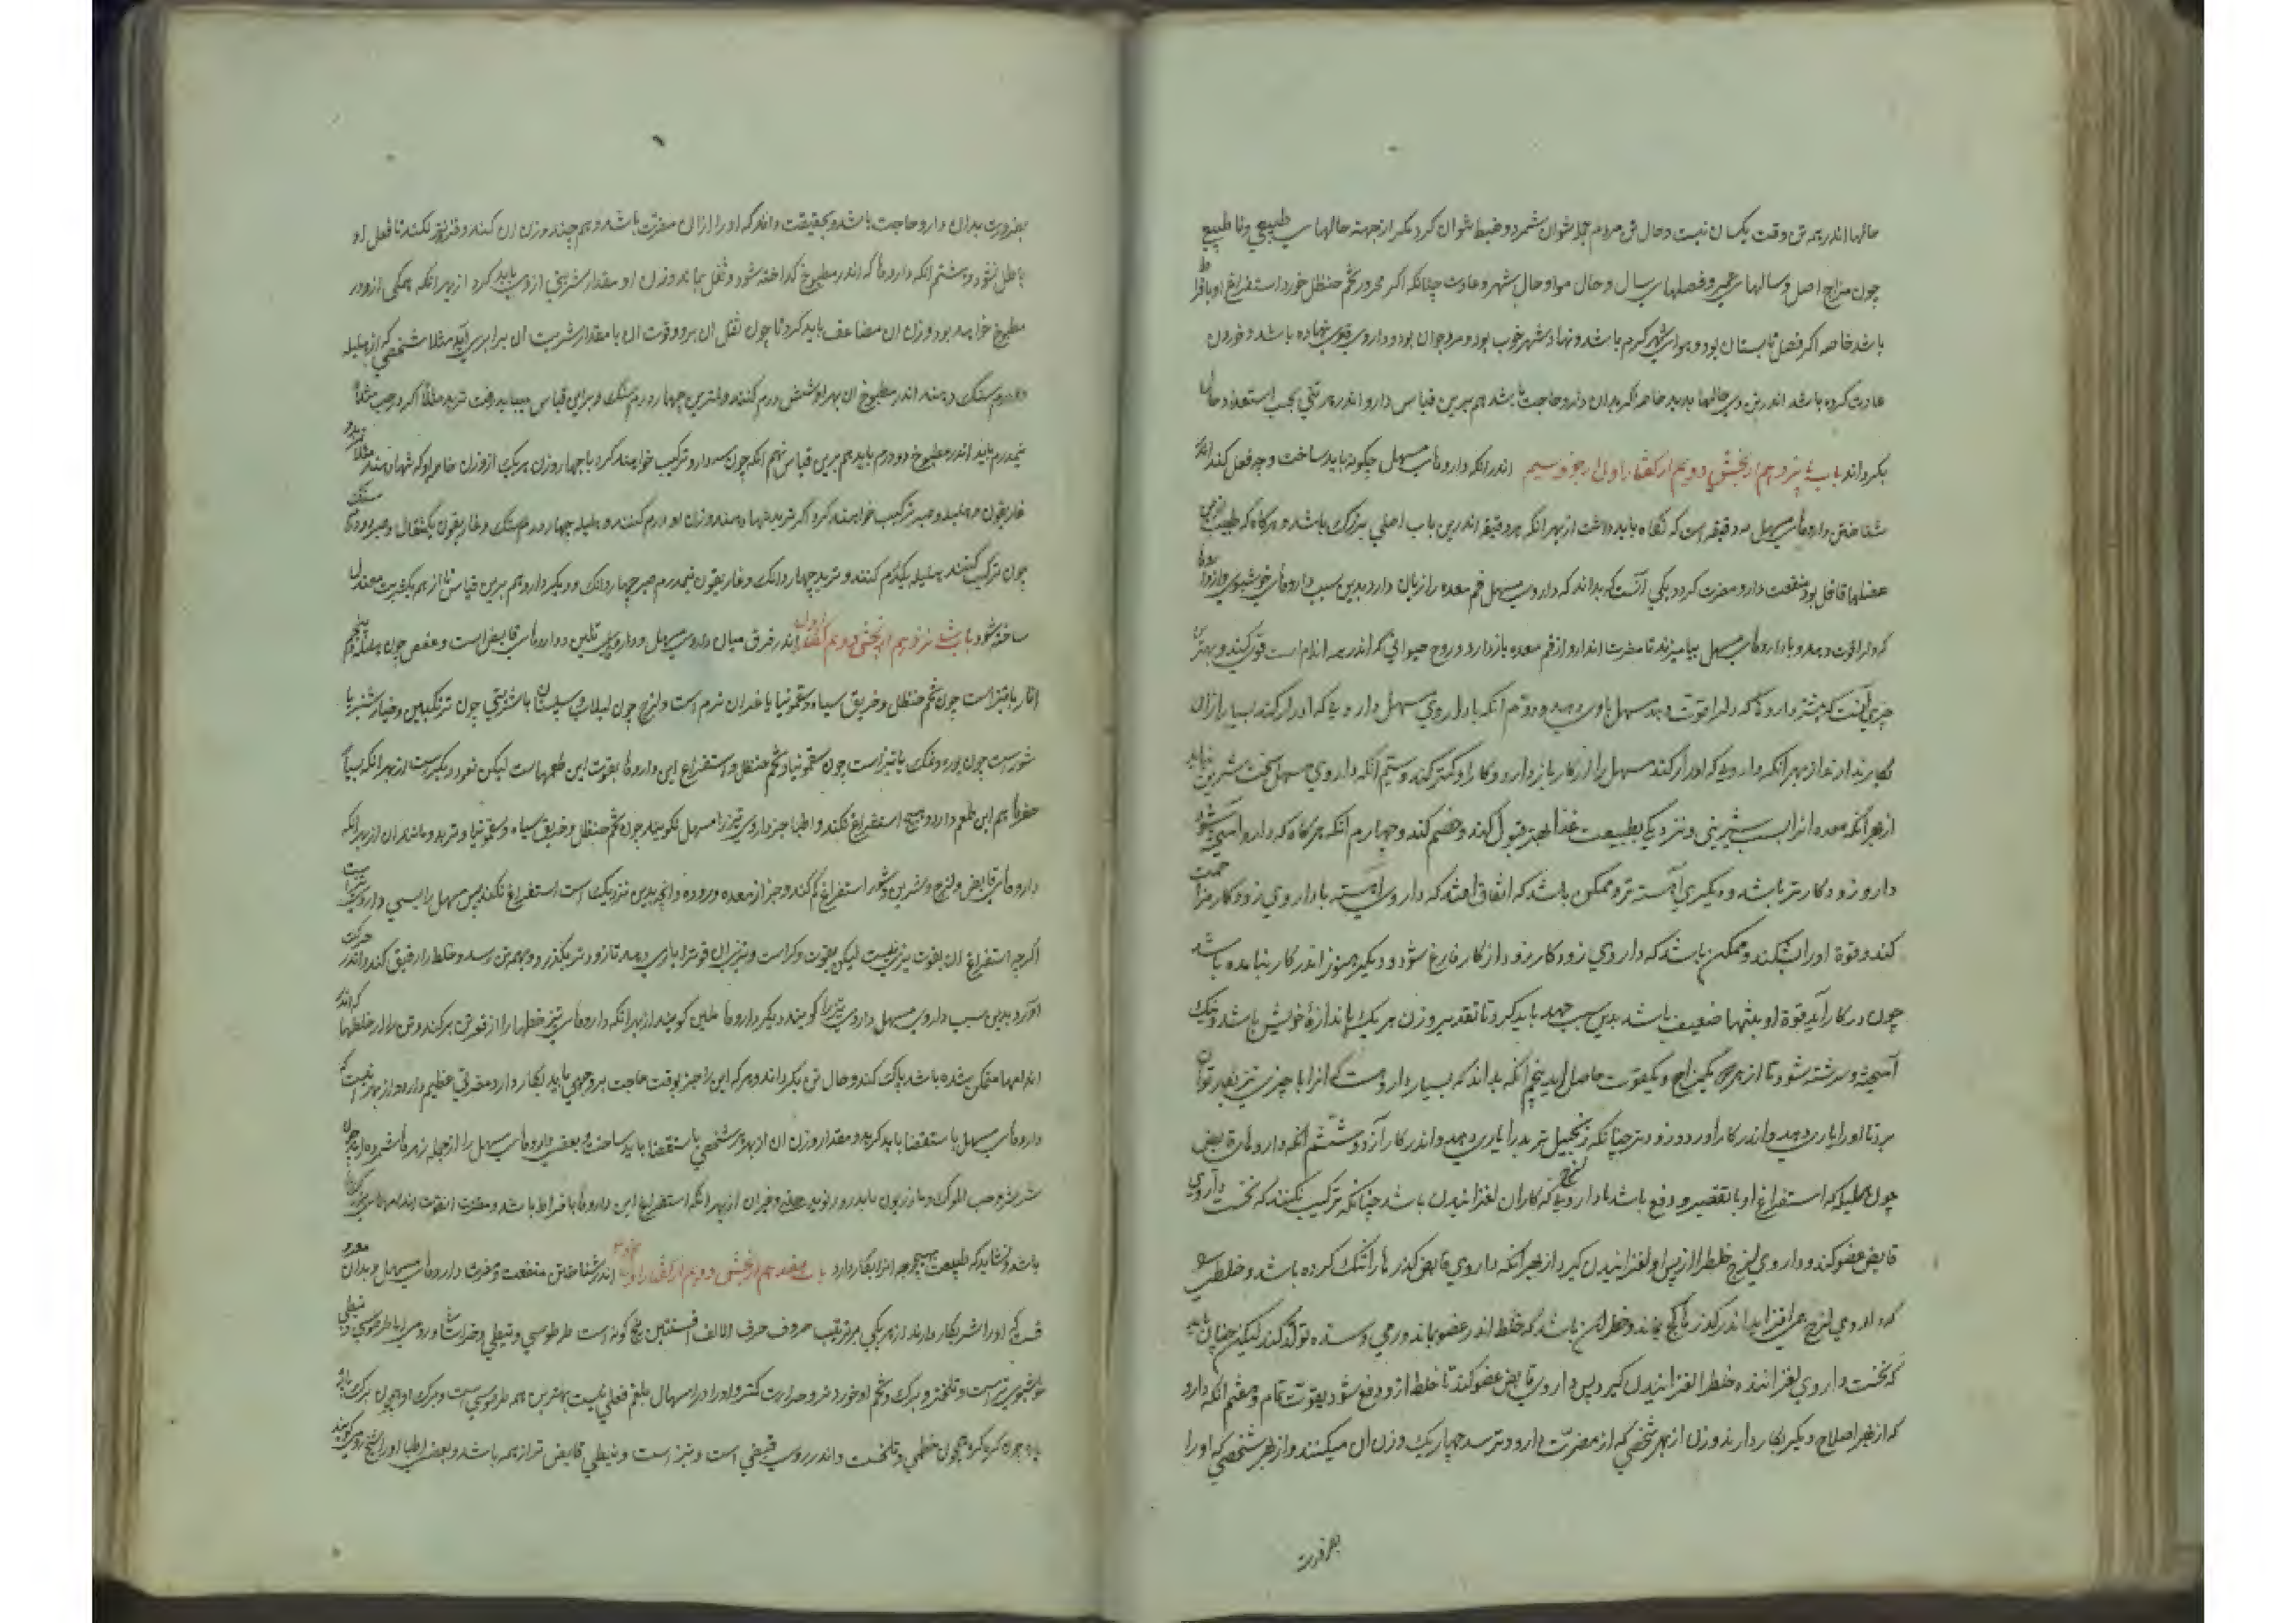 حالها اندر همه تن و وقت یکسان نیست و حال تن مردم جمله نتوان شمرد و ضبط نتوان کرد مگر از جهته حالهای طبیعی و نا طبیعی
چون مزاج اصل و سالهای عمر و فصلهای سال و حال هوا و حال شهر و عادت چنانکه اگر محرور تخم حنظل خورد استفراغ او بافراط
باشد خاصه اگر فصل تابستان بود و هوای شهر گرم باشد و نهاد شهر خوب بود و مرد جوان بود و داروی قوی نهاده باشد و خوردن
عادت کرده باشد اندر تن وی حالها پدید خاصه اگر بدان دارو حاجت نباشد هم برین قیاس دارو اندر هر تنی بحسب استعداد و حال
بگرداند باب پانزدهم از بخش دویم از گفتار اول از جزو سیم اندر انکه داروهای مسهل چگونه باید ساخت و چه فعل کند اندر
شناختن داروهای مسهل ده دقیقه است که نگاه باید داشت از بهر انکه هر دقیقه اندرین باب اصلی بزرگ باشد و هرگاه که طبیب ازین
غافل بود منفعت دارو مضرت گردد یکی آنست که بداند که داروی مسهل فم معده را زیان دارد بدین سبب داروهای خوشبوی
که دل را قوت دهد با داروهای مسهل بیامیزند تا مضرت ان دارو از فم معده بازدارد و روح حیوانی که اندر همه اندام است قوی کند و بهترین
چیزی آنست که بیشتر داروها که دل را قوت دهد مسهل را یاری دهد و دوم آنکه با داروی مسهل دارویی که ادرار کند بسیار ازان
بکار ندارند از بهر آنکه دارویی که ادرار کند مسهل را از کار باز دارد و کار او کمتر کند و سیم آنکه داروی مسهل سخت شیرین نباید
از بهر آنکه معده انرا بسبب شیرینی و نزدیکی بطبیعت غذا بهتر قبول کند و هضم کند و چهارم آنکه هرگاه که دارو آمیخته شود
دارو زود کارتر باشد و دیگری آهسته تر و ممکن باشد که اتفاق افتد که داروی آهسته با داروی زود کار مزاحمت
کند و قوة او را بشکند و ممکن باشد که داروی زود کار زود از کار فارغ شود و دیگر هنوز اندر کار نیامده باشد
چون در کار آید قوة او بتنها ضعیف باشد بدین سبب جهد باید کرد تا تقدیر وزن هر یک باندازهٔ خویش باشد و نیک
آمیخته و سرشته شود تا از همه یکمزاج و یکقوت حاصل اید پنجم آنکه بداند که بسیار داروست که انرا با چیزی تیز
برتا او را یاری دهد و اندر کار آورد زودتر چنانکه زنجبیل تربد را یاری دهد و اندر کار آرد و ششم آنکه داروهای قابض
چون هلیله که استفراغ او با تقصیر و دفع باشد با داروی لزج که کار ان لغزانیدن باشد چنانکه ترکیب نکنند که نخست داروی
قابض عضو کند و داروی لزج خلط را از پس او لغزانیدن گیرد از بهر آنکه داروی قابض گذرها را تنگ کرده باشد و خلطی
که داروی لزج همی لغزاند اندر گذرها بماند و خطر این باشد که خلط اندر عضو بماند و ورمی و سده تولد کند لیکن چنان باید
که نخست داروی لغزاننده خلط را لغزانیدن گیرد پس داروی قابض عضو کند تا خلط ازو دفع شود بقوت تمام و هفتم آنکه دارو
که از بهر اصلاح دیگر بکار دارند وزن از بهر شخصی که از مضرت دارو ترسد چهار یک وزن ان میکنند و از بهر شخصی که او را
بضرورت
بضرورت بدان دارو حاجت باشد و بحقیقت داند که او را ازان مضرت باشد هم چند وزن ان کنند و فزونتر نکنند تا فعل او
باطل نشود و هشتم انکه داروها که اندر مطبوخ گداخته شود و ثفل بماند وزن او مقدار شربتی ازوی باید کرد از بهر انکه همگی ازو در
مطبوخ خواهد بود وزن ان مضاعف باید کرد تا چون ثفل ان برود قوت ان با مقدار شربت ان برابر آید مثلا شخصی که از هلیله
دو درم سنگ دهند اندر مطبوخ ان بهر او شش درم کنند و کمترین چهار درم سنگ و برین قیاس میباید رفت تربد مثلا اگر در حب مثلا
نیمدرم باید اندر مطبوخ دو درم باید هم برین قیاس نهم انکه چون سه دارو ترکیب خواهند کرد یا چهار وزن هر یک از وزن خاصه او که تنها دهند مثلا تربد و
غاریقون و هلیله و صبر ترکیب خواهند کرد اگر تربد تنها دهند وزن او دو درم کنند و هلیله چهار درمسنگ و غاریقون یکمثقال و صبر دو درمسنگ
چون ترکیب کنند هلیله یکدرم کنند و تربد چهار دانگ و غاریقون نیمدرم صبر چهار دانگ و دیگر دارو هم برین قیاس تا از همه یکشربت معتدل
ساخته شود باب شانزدهم از بخش دویم از گفتار اول اندر فرق میان داروی مسهل و داروی ملین داروهای قابض است و عفص چون هلیله و شحم
انار یا تیز است چون تخم حنظل و خربق سیاه و سقمونیا یا غدان نرم است و لزج چون لبلاب و سپستان یا شیرین چون ترنگبین و خیارشنبر یا
شورست چون بوره و نمک یا تیز است چون سقمونیا و تخم حنظل و استفراغ این داروها بقوت این طعمهاست لیکن نه دیگرست از بهر انکه بسیار
چیزها هم این طعم دارد و هیچ استفراغ نکند و اطبا جز داروی تیز را مسهل نگویند چون تخم حنظل و خربق سیاه و سقمونیا و تربد و مانند ان از بهر انکه
داروهای قابض و لزج و شیرین و شور استفراغ کم کند و جز از معده و روده و انچه بدین نزدیک است استفراغ نکند پس مسهل براستی داروی تیزست
اگرچه استفراغ ان بقوت تیزی نیست لیکن بقوت دگر است و تیزی ان قوت را یاری دهد تا زودتر بگذرد و بهمه تن رسد و خلط را رقیق کند و اندر حرکت
آورد بدین سبب داروی مسهل داروی تیز را گویند و دیگر داروها ملین گویند از بهر انکه داروهای تیز خلطها را از قعر تن برکند و تن را از خلطها که اندر
اندامها متمکن شده باشد پاک کند و حال تن بگرداند و هرکه این را جز بوقت حاجت بر وجهی باید بکار دارد مضرتی عظیم دارد و از بهر اینست که
داروهای مسهل باستقصا باید گزید و مقدار وزن ان از بهر هر شخصی باستقصا باید ساخت و بعضی داروهای مسهل را از جمله زهرها شمرده اند چون
شبرم و حب الملوک و مازریون و غیر ان از بهر انکه استفراغ این داروها بافراط باشد و مضرت
باشد و نشاید که طبیب بهیچ وجه انرا بکار دارد باب هفدهم از بخش دویم از گفتار اول از جزو سیم اندر شناختن منفعت و مضرت داروهای مسهل و بدان
که او را شربکار دارند از هر یکی بر ترتیب حروف حرف الالف افسنتین پنج گونه است طرسوسی و نبطی و خراسانی و رومی اما طرسوسی و نبطی
خوشبوی تر است و تلختر و برگ و تخم او خوردتر و حرارت کمتر و او را در اسهال بلغم فعلی نیست بهترین همه طرسوسی است و برگ او چون برگ
پاره پاره کرده گره همچون خطمی و تلخست و اندر روی قبضی است و تیز است و نبطی قابض تر از همه باشد و بعضی اطبا او را شیح رومی گویند